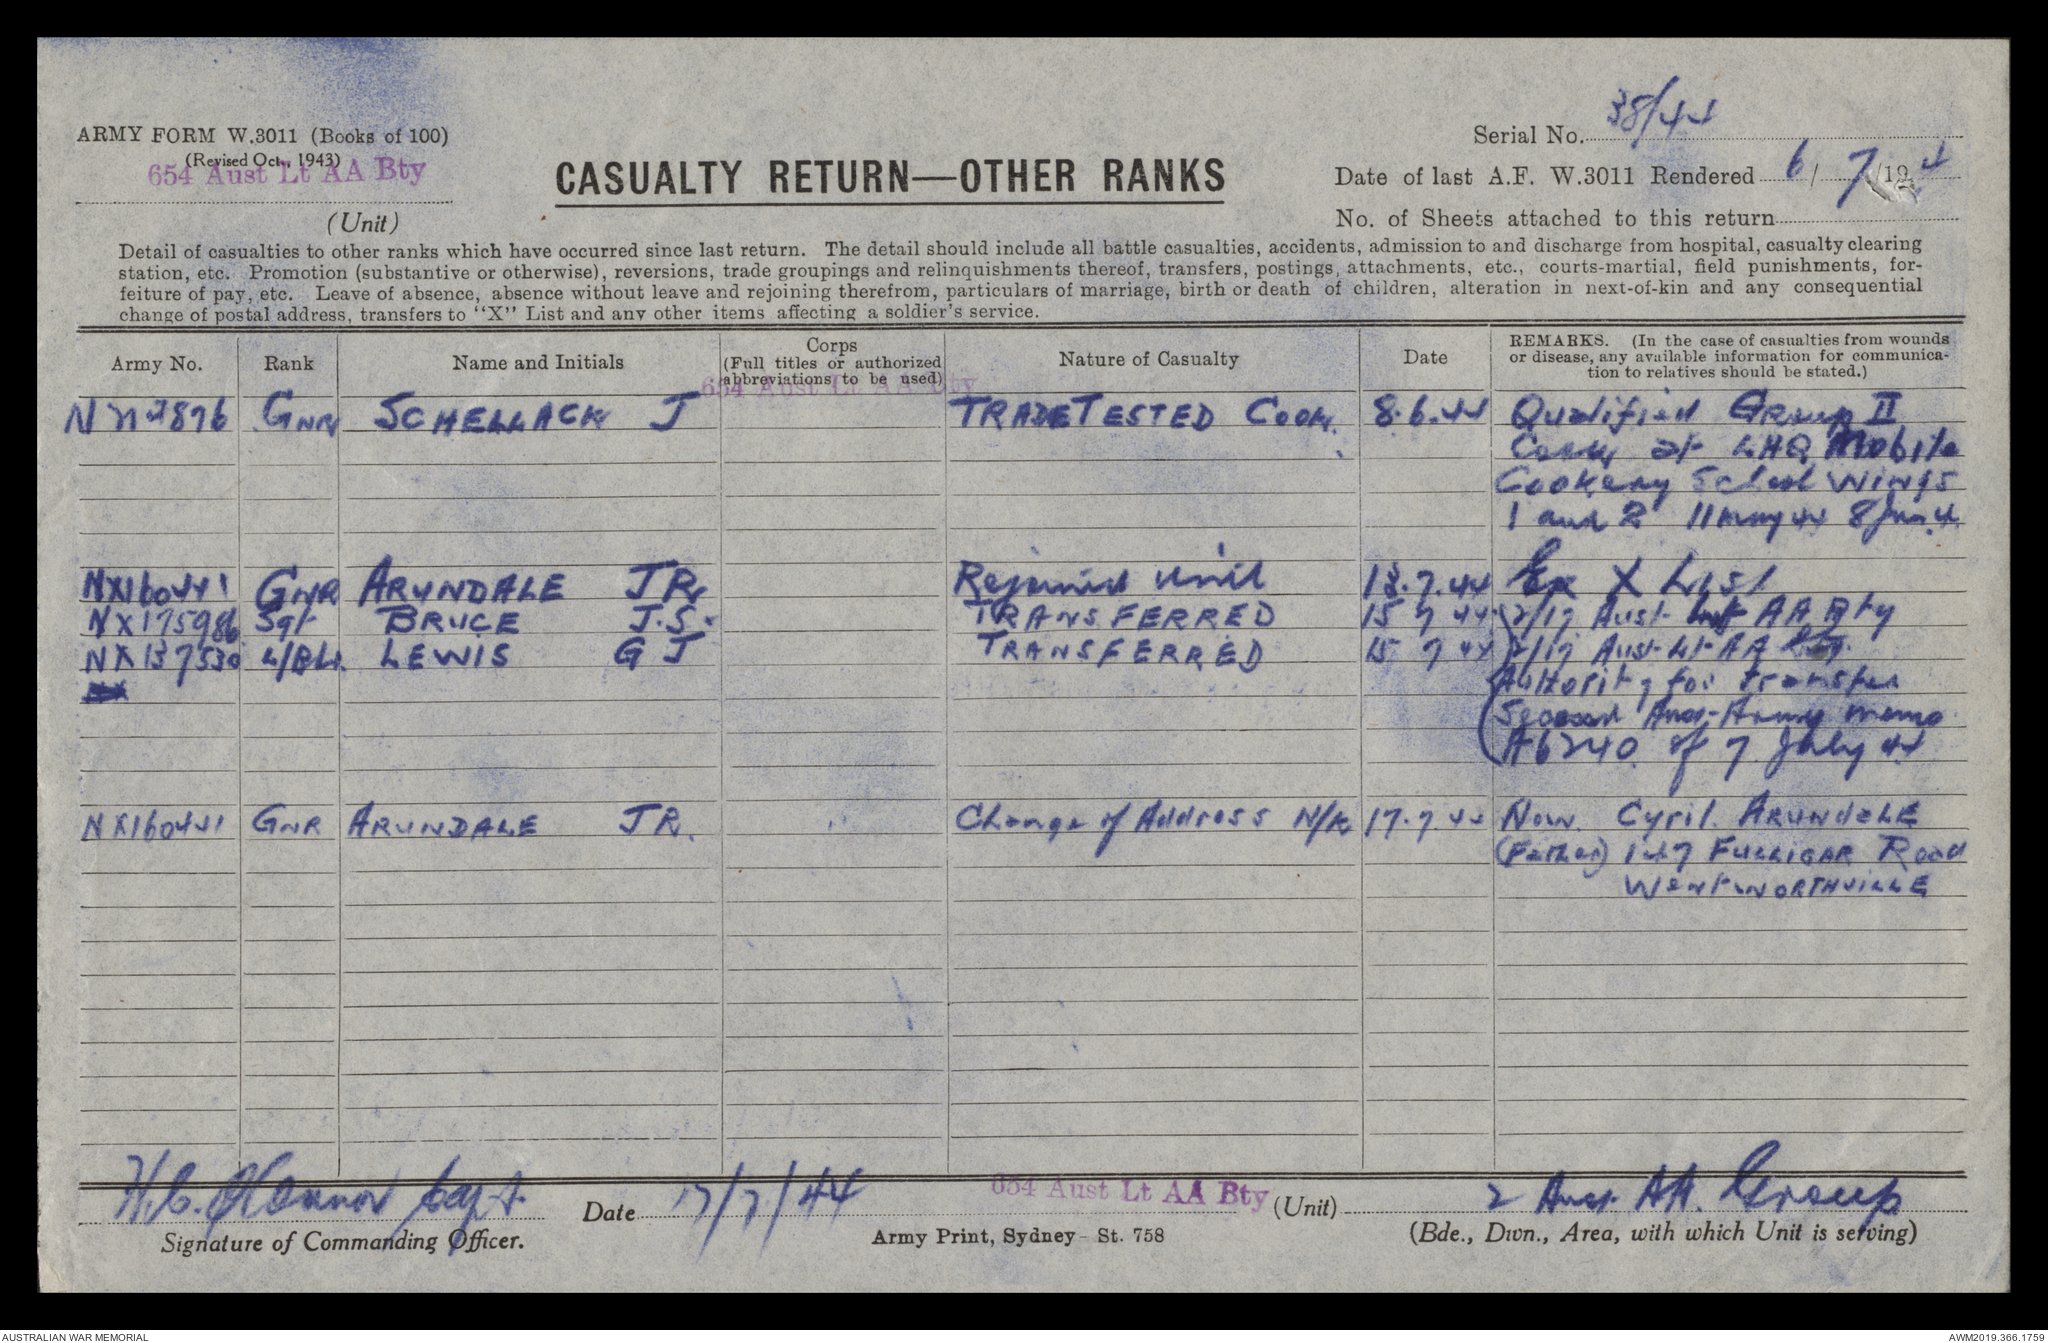 ARMY FORM W.3011 (Books of 100)
(Revised Oct., 1943)
654 Aust Lt AA Bty
(Unit)
CASUALTY RETURN—OTHER RANKS
Serial No. 38/44
Date of last A.F. W.3011 Rendered 6/7/194
No. of Sheets attached to this return
Detail of casualties to other ranks which have occurred since last return. The detail should include all battle casualties, accidents, admission to and discharge from hospital, casualty clearing
station, etc. Promotion (substantive or otherwise), reversions, trade groupings and relinquishments thereof, transfers, postings, attachments, etc., courts-martial, field punishments, for-
feiture of pay, etc. Leave of absence, absence without leave and rejoining therefrom, particulars of marriage, birth or death of children, alteration in next-of-kin and any consequential
change of postal address, transfers to "X" List and any other items affecting a soldier's service.
Army No. Rank Name and Initials Corps (Full titles or authorized abbreviations to be used) Nature of Casualty Date REMARKS. (In the case of casualties from wounds or disease, any available information for communication to relatives should be stated.)
654 Aust Lt AA Bty
GNR SCHELLACK J TRADE TESTED COOK. 8.6.44 Qualified Group II
Cook at LHQ Mobile
Cookery School Wings
1 and 2 11 may 44 8 Jun 4
NX160441 GNR ARUNDALE JR. Rejoined unit 7.44 Ex X List
NX175986 Sgt BRUCE J.S. TRANSFERRED 15 7 44 2/17 Aust AA Bty
NX137530 L/Bdr. LEWIS G J TRANSFERRED 15 7 44 2/17 Aust Lt AA
Authority for transfer
Second Aust Army memo
A6240 of 7 July 44
NX160441 GNR ARUNDALE JR. Change of Address N/K 17.7.44 Now. Cyril ARUNDALE
(Father) 147 FULLIGAR Road
WENTWORTHVILLE
H.C. O'Connor Capt Date 17/7/44 654 Aust Lt AA Bty (Unit) 2 Aust AA. Group
Signature of Commanding Officer. Army Print, Sydney– St. 758 (Bde., Divn., Area, with which Unit is serving)
AUSTRALIAN WAR MEMORIAL AWM2019.366.1759